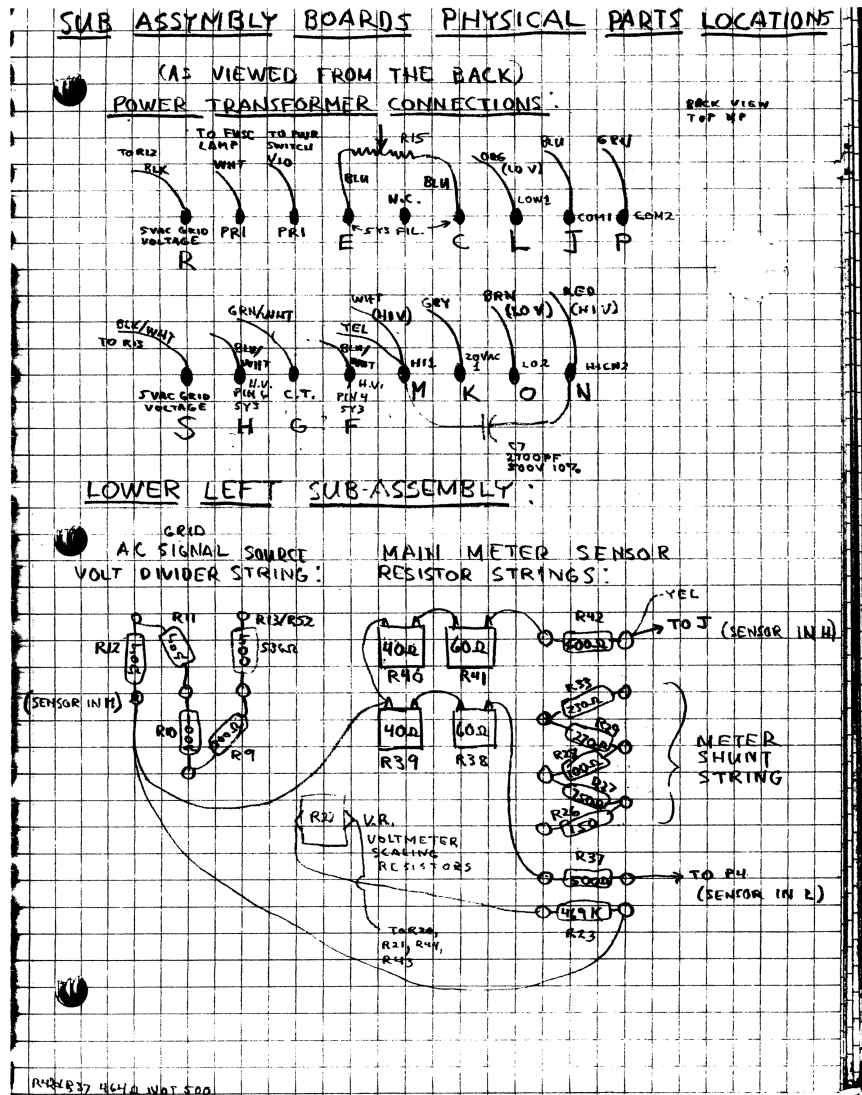 SUB ASSYMBLY BOARDS PHYSICAL PARTS LOCATIONS
(AS VIEWED FROM THE BACK)
POWER TRANSFORMER CONNECTIONS:
BACK VIEW
TOP UP
TO R12
BLK
TO FUSE
LAMP
WHT
TO PWR
SWITCH
VIO
R15
BLU
N.C.
BLU
ORG
(LO V)
LOW1
BLU
COM1
GRY
COM2
5VAC GRID
VOLTAGE
PRI
PRI
5Y3 FIL.
R
E
C
L
J
P
BLK/WHT
TO R13
GRN/WHT
BLK/
WHT
WHT
(HI V)
YEL
BLK/
WHT
GRY
BRN
(LO V)
RED
(HI V)
HI1
20VAC
1
LO2
5VAC GRID
VOLTAGE
H.V.
PIN 6
5Y3
C.T.
H.V.
PIN 4
5Y3
S
H
G
F
M
K
O
N
C7
2700PF
500V 10%
LOWER LEFT SUB-ASSEMBLY:
GRID
AC SIGNAL SOURCE
VOLT DIVIDER STRING:
MAIN METER SENSOR
RESISTOR STRINGS:
R11
R12
R13/R52
536Ω
R10
R9
(SENSOR IN H)
40Ω
R40
60Ω
R41
R42
500Ω
YEL
TO J (SENSOR IN H)
40Ω
R39
60Ω
R38
R33
230Ω
R29
270Ω
R28
100Ω
R27
750Ω
R26
150
METER
SHUNT
STRING
V.R.
VOLTMETER
SCALING
RESISTORS
TO R20,
R21, R44,
R43
R37
500Ω
TO P4
(SENSOR IN L)
469K
R23
R42/R37 464Ω NOT 500